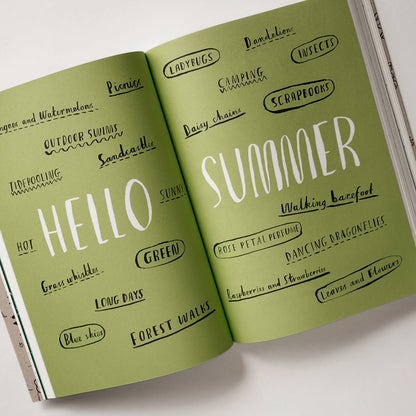 Picnics
and Watermelons
OUTDOOR SWIMS
Sandcastles
TIDEPOOLING
SUNNY
HELLO
HOT
GREEN
Grass whistles
LONG DAYS
Blue skies
FOREST WALKS
Dandelions
LADYBUGS
INSECTS
CAMPING
SCRAPBOOKS
Daisy chains
SUMMER
Walking barefoot
ROSE PETAL PERFUME
DANCING DRAGONFLIES
Raspberries and Strawberries
Leaves and Flowers